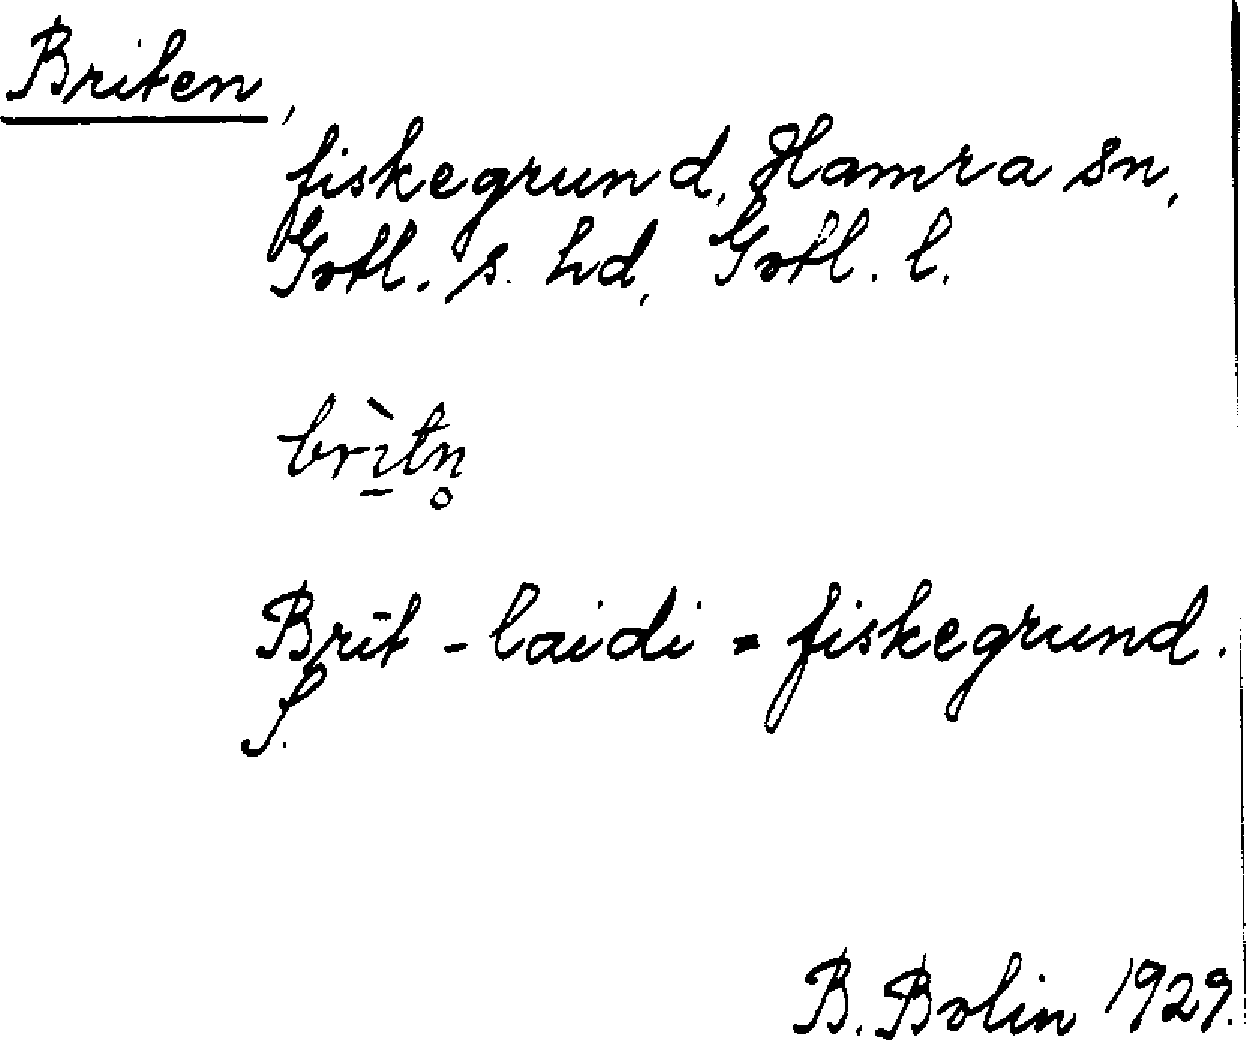 Briten,
fiskegrund, Hamra sn,
Gotl. s. hd, Gotl. l.
brı̱̀tn̥
Brīt - laidi = fiskegrund.
f.
B. Bolin 1929.